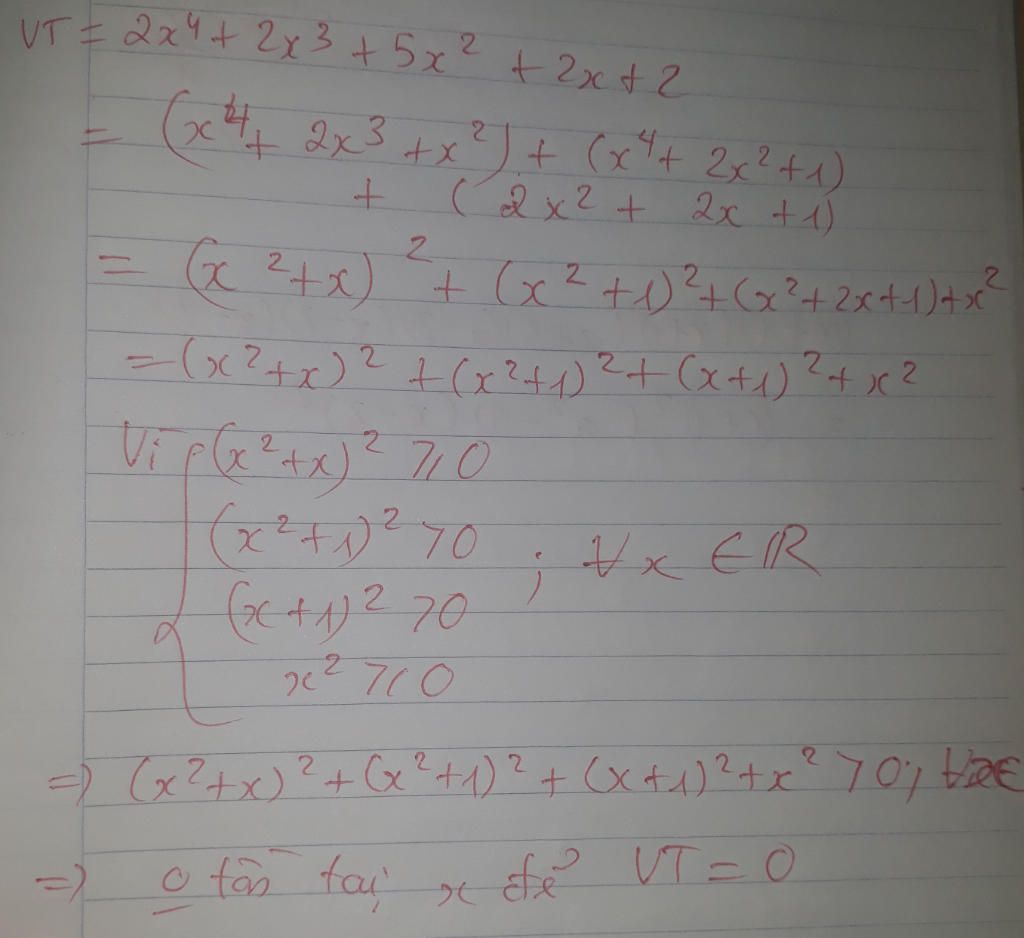 VT = 2x⁴ + 2x³ + 5x² + 2x + 2
= (x⁴ + 2x³ + x²) + (x⁴ + 2x² + 1)
+ (2x² + 2x + 1)
= (x² + x)² + (x² + 1)² + (x² + 2x + 1) + x²
= (x² + x)² + (x² + 1)² + (x + 1)² + x²
Vì { (x² + x)² ≥ 0
(x² + 1)² > 0 ; ∀x ∈ ℝ
(x + 1)² > 0
x² ≥ 0
=> (x² + x)² + (x² + 1)² + (x + 1)² + x² > 0; ∀x ∈
=> o tồn tại x để VT = 0